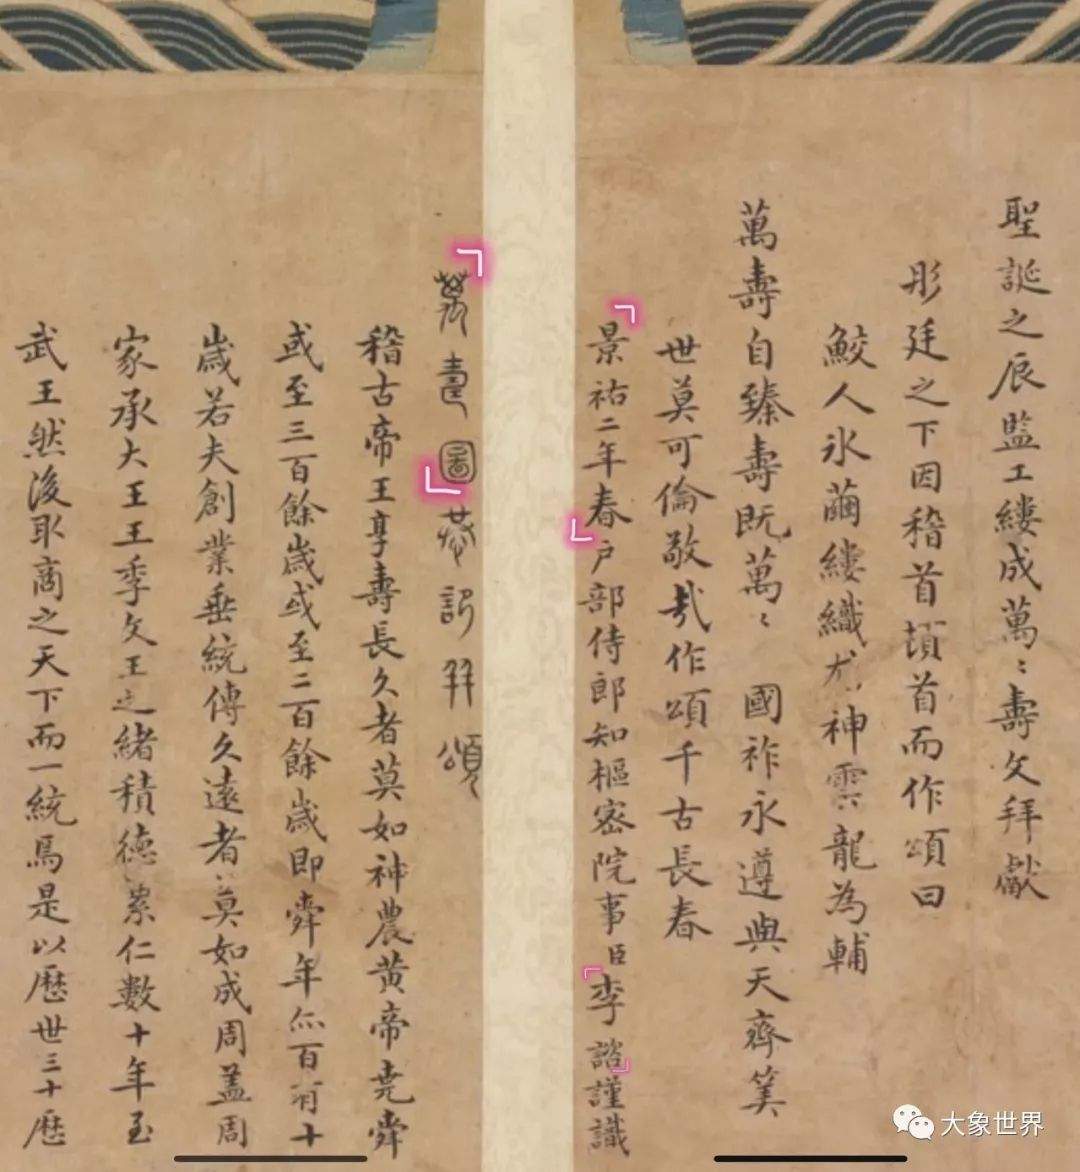 萬壽圖恭記并頌
稽古帝王享壽長久者莫如神農黃帝堯舜
或至三百餘歲或至二百餘歲即舜年亦百有十
歲若夫創業垂統傳久遠者莫如成周蓋周
家承大王王季文王之緒積德累仁數十年至
武王然後取商之天下而一統焉是以歷世三十歷
聖誕之辰監工縷成萬〻壽文拜獻
彤廷之下因稽首頓首而作頌曰
鮫人氷繭縷織尤神雲龍為輔
萬壽自臻壽既萬〻國祚永遵與天齊筭
世莫可倫敬哉作頌千古長春
景祐二年春戶部侍郎知樞密院事臣李諮謹識
大象世界